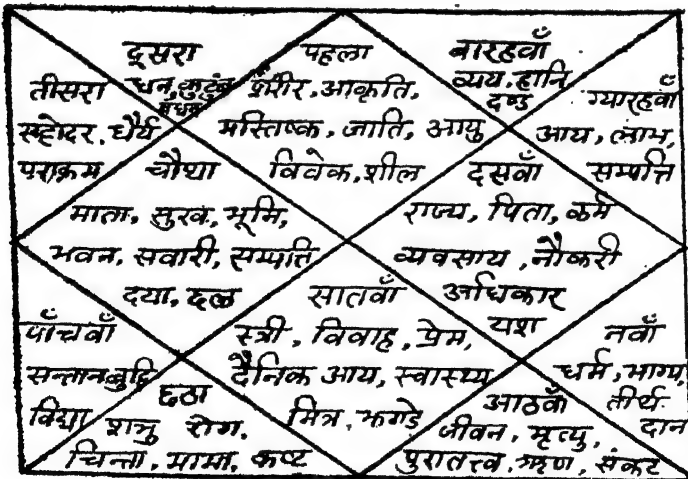 पहला
शरीर, आकृति,
मस्तिष्क, जाति, आयु
विवेक, शील
दूसरा
धन, कुटुंब
तीसरा
सहोदर, धैर्य
पराक्रम
चौथा
माता, सुख, भूमि,
भवन, सवारी, सम्पत्ति
दया, छल
पाँचवाँ
सन्तान, बुद्धि
विद्या
छठा
शत्रु रोग,
चिन्ता, मामा, कष्ट
सातवाँ
स्त्री, विवाह, प्रेम,
दैनिक आय, स्वास्थ्य
मित्र, झगडे
आठवाँ
जीवन, मृत्यु,
पुरातत्त्व, ऋण, संकट
नवाँ
धर्म, भाग्य,
तीर्थ
दान
दसवाँ
राज्य, पिता, कर्म
व्यवसाय, नौकरी
अधिकार
यश
ग्यारहवाँ
आय, लाभ,
सम्पत्ति
बारहवाँ
व्यय, हानि
दण्ड